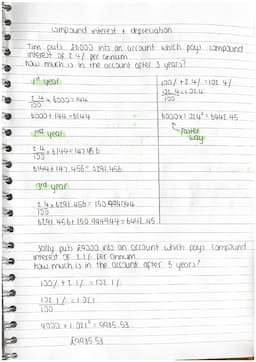 compound interest + depreciation
Tim puts £6000 into an account which pays compound
interest of 2.4% per annum.
how much is in the account after 3 years?
1st year
2.4/100 x 6000 = 144
6000 + 144 = 6144
2nd year
2.4/100 x 6144 = 147.456
6144 + 147.456 = 6291.456
3rd year
2.4/100 x 6291.456 = 150.994944
6291.456 + 150.994944 = 6442.45
100% + 2.4% = 102.4%
102.4/100 = 1.024
6000 x 1.024³ = 6442.45
faster
way
Sally puts £9000 into an account which pays compound
interest of 2.1% per annum.
how much is in the account after 5 years?
100% + 2.1% = 102.1%
102.1/100 = 1.021
9000 x 1.021⁵ = 9985.53
£9985.53